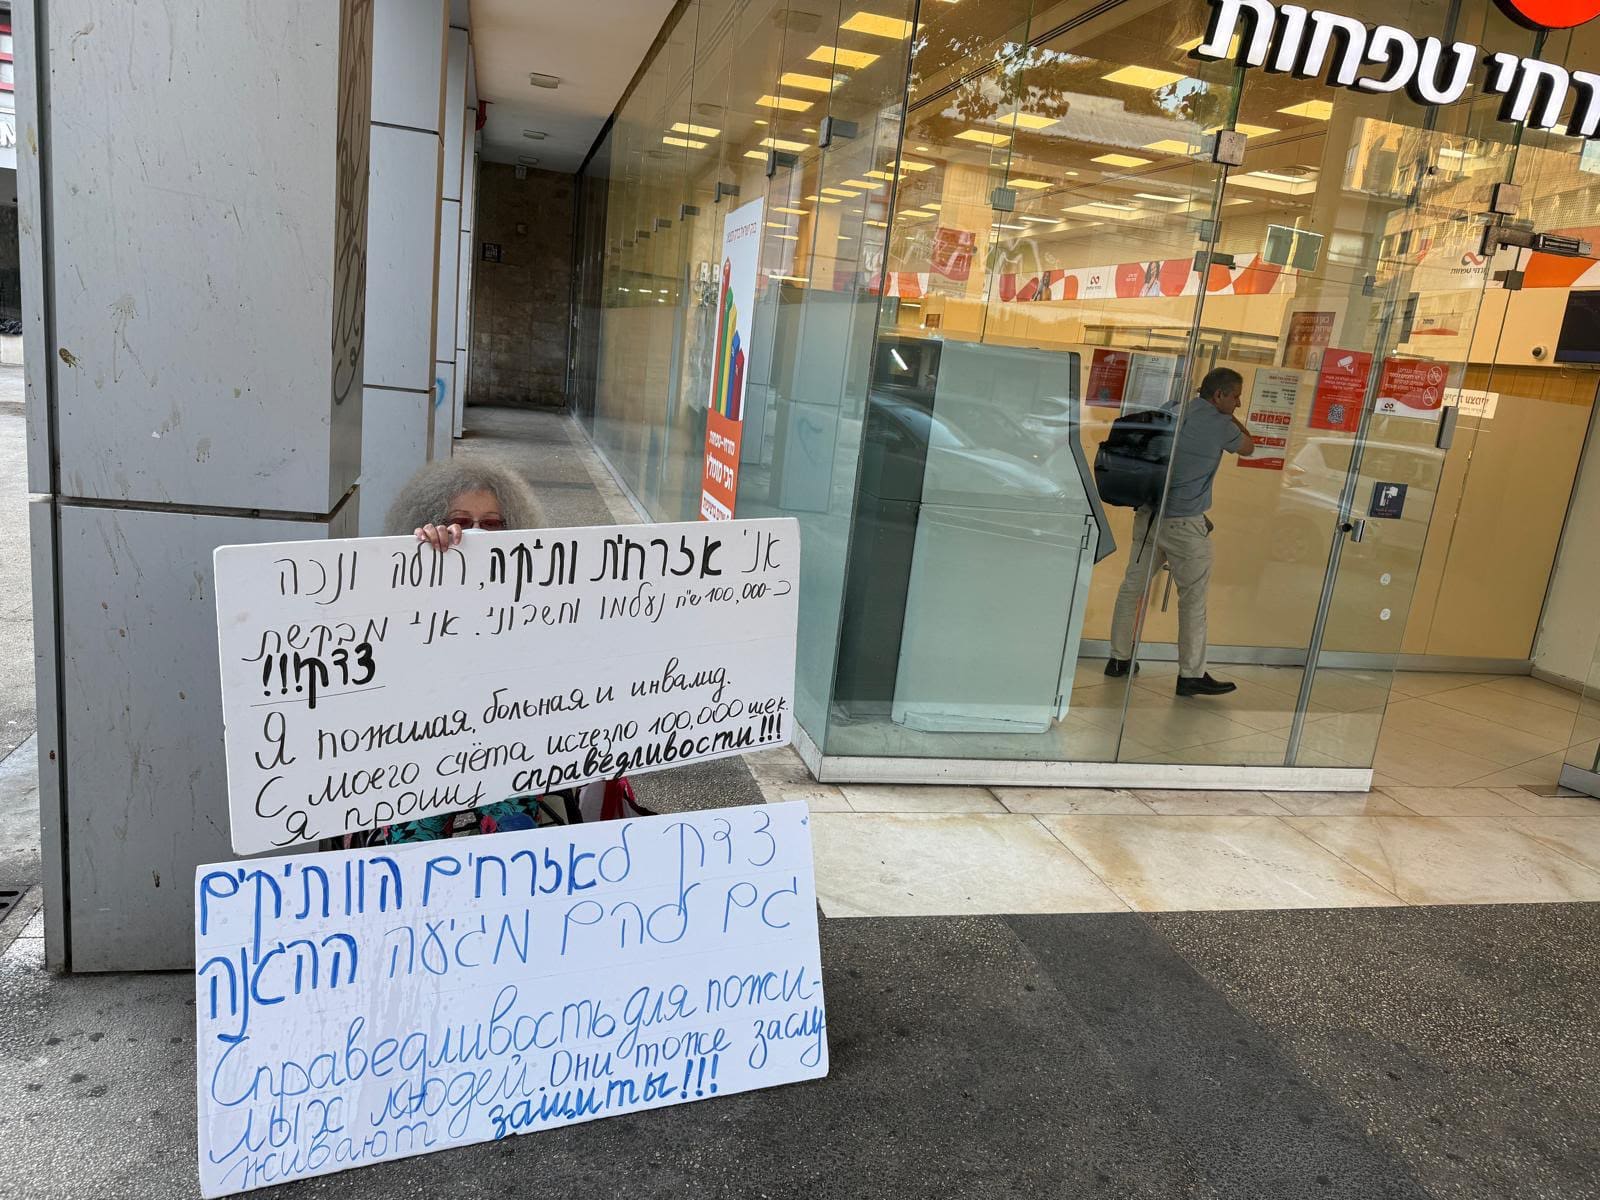 רחי טפחות
אני אזרחית ותיקה, חולה ונכה
כ-100,000 ש"ח נעלמו וחשבוני. אני מבקשת
צדק!!!
Я пожилая, больная и инвалид.
С моего счёта исчезло 100,000 шек.
я прошу справедливости!!!
צדק לאזרחים הוותיקים
גם להם מגיעה ההגנה
Справедливость для пожи-
лых людей. Они тоже заслу
живают защиты!!!